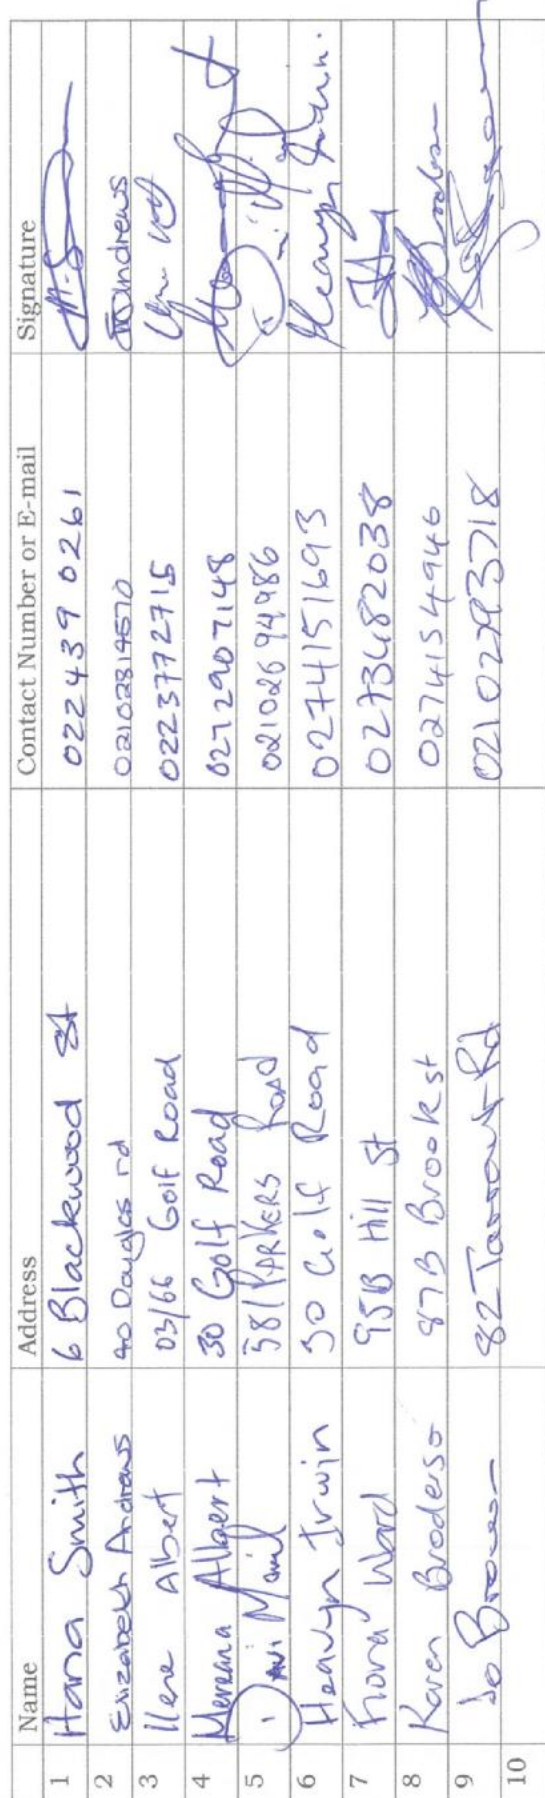 Name Address Contact Number or E-mail Signature
1 Hana Smith 6 Blackwood St 022 439 0261
2 Elizabeth Andrews 40 Douglas rd 02102814570 Andrews
3 Ilene Albert 03/66 Golf Road 0223772715
4 Mereana Albert 30 Golf Road 0272907148
5 581 PARKERS Road 02102694986
6 Heavyn Irwin 30 Golf Road 0274151693 Heavyn
7 Fiona Ward 95B Hill St 0273482038
8 Karen Broderso 87B Brook st 0274154946
9 Jo Brown 82 Rd
10